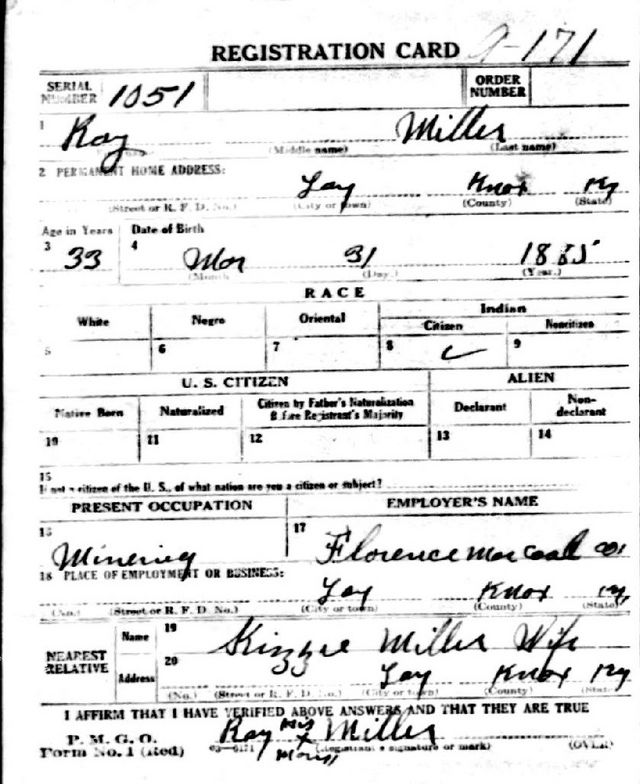 REGISTRATION CARD 9-171
SERIAL NUMBER 1051 ORDER NUMBER
1 Ray Miller
(Middle name) (Last name)
2 PERMANENT HOME ADDRESS:
Jay Knox Ky
(Street or R. F. D. No.) (City or town) (County) (State)
Age in Years Date of Birth
3 33 4 Mar 31 1885
(Month) (Day.) (Year.)
RACE
White Negro Oriental Indian
Citizen Noncitizen
5 6 7 8 ✓ 9
U. S. CITIZEN ALIEN
Native Born Naturalized Citizen by Father's Naturalization Before Registrant's Majority Declarant Non-declarant
10 11 12 13 14
15
If not a citizen of the U. S., of what nation are you a citizen or subject?
PRESENT OCCUPATION EMPLOYER'S NAME
16 Mining 17 Florence Coal Co
18 PLACE OF EMPLOYMENT OR BUSINESS:
Jay Knox Ky
(No.) (Street or R. F. D. No.) (City or town) (County) (State)
NEAREST RELATIVE
Name 19 Kizzie Miller Wife
Address 20 Jay Knox Ky
(No.) (Street or R. F. D. No.) (City or town) (County) (State)
I AFFIRM THAT I HAVE VERIFIED ABOVE ANSWERS AND THAT THEY ARE TRUE
P. M. G. O.
Form No. 1 (Red) 03-6171 Ray his x mark Miller
(Registrant's signature or mark) (OVER)